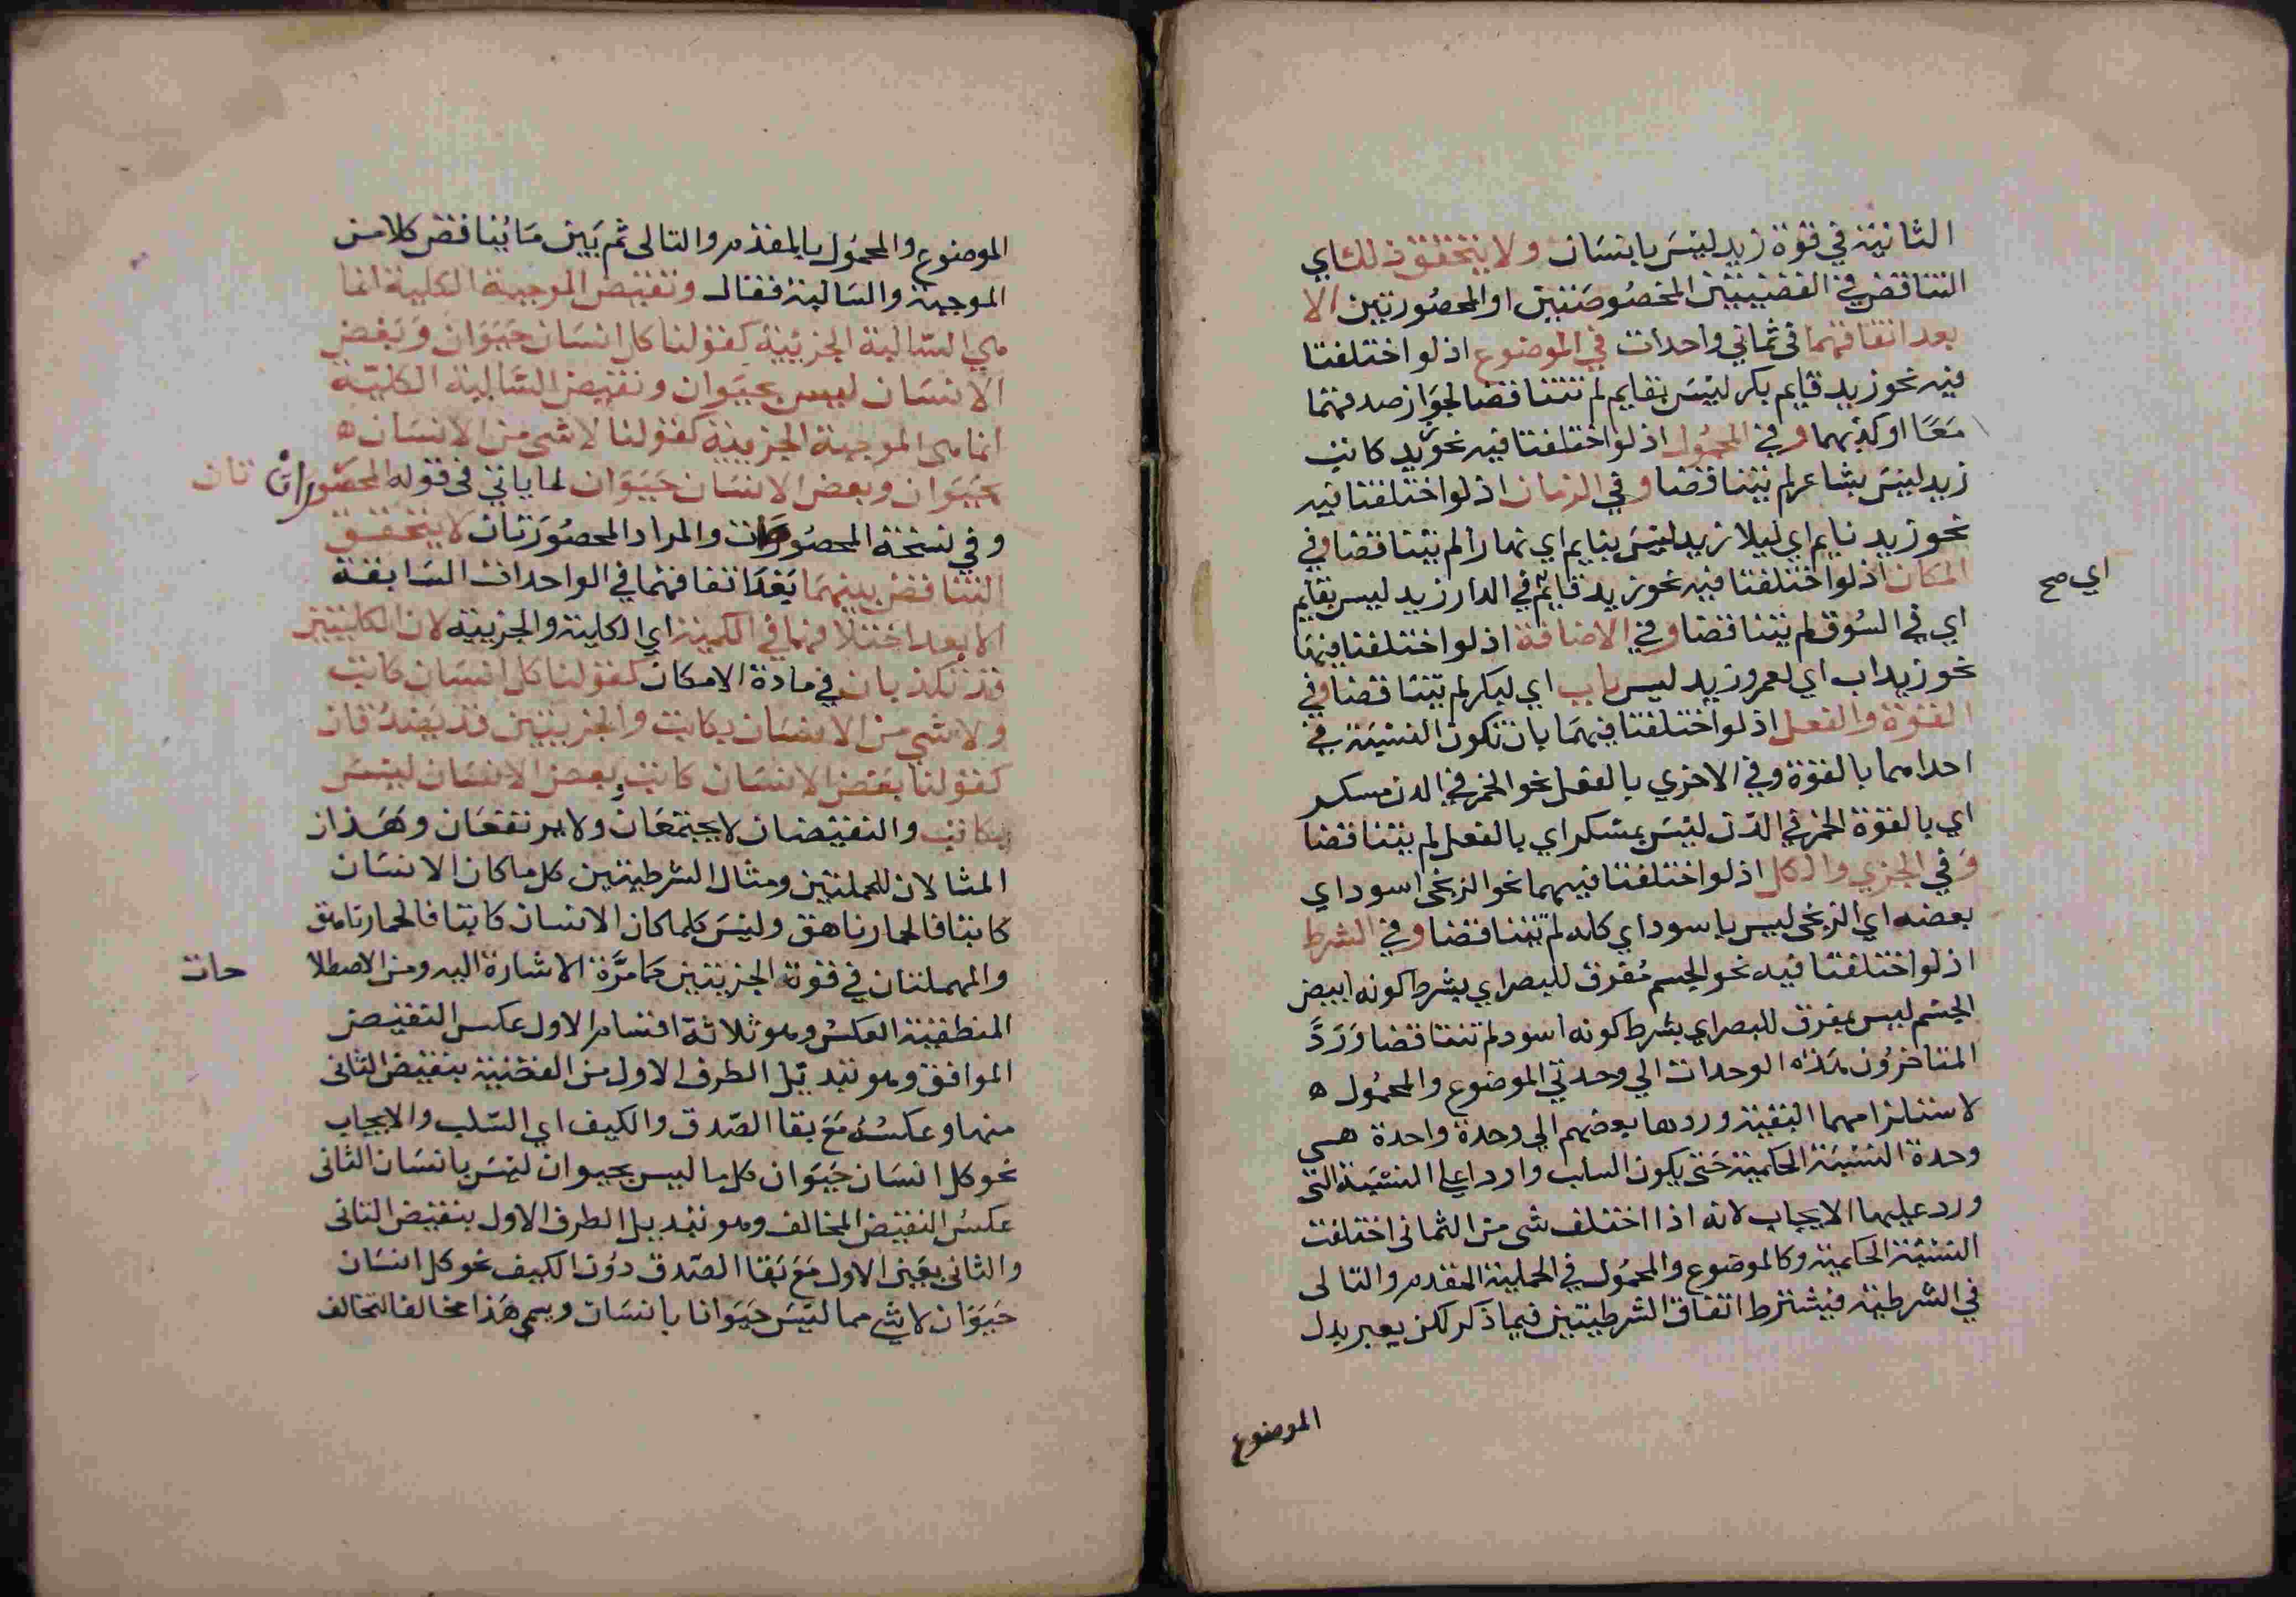 الثانية في قوة زيد ليس بانسان ولا يتحقق ذلك اي
التناقض في القضيتين المخصوصتين او المحصورتين الا
بعد اتفاقهما في ثماني واحدات في الموضوع اذ لو اختلفتا
فيه نحو زيد قايم بكر ليس بقايم لم تتناقضا لجواز صدقهما
معًا او كذبهما وفي المحمول اذ لو اختلفتا فيه نحو زيد كاتب
زيد ليس بشاعر لم يتناقضا وفي الزمان اذ لو اختلفتا فيه
نحو زيد نايم اي ليلا زيد ليس بنايم اي نهارا لم يتناقضا وفي
المكان اذ لو اختلفتا فيه نحو زيد قايم في الدار زيد ليس بقايم
اي صح
اي في السوق لم يتناقضا وفي الاضافة اذ لو اختلفتا فيهما
نحو زيد اب اي لعمرو زيد ليس باب اي لبكر لم تتناقضا وفي
القوة والفعل اذ لو اختلفتا فيهما بان تكون النسبة في
احداهما بالقوة وفي الاخري بالفعل نحو الخمر في الدن مسكر
اي بالقوة الخمر في الدن ليس بمسكر اي بالفعل لم يتناقضا
وفي الجزي والكل اذ لو اختلفتا فيهما نحو الزنجي اسود اي
بعضه اي الزنجي ليس باسود اي كله لم تتناقضا وفي الشرط
اذ لو اختلفتا فيه نحو الجسم مفرق للبصر اي بشرط كونه ابيض
الجسم ليس بمفرق للبصر اي بشرط كونه اسود لم تتناقضا وَرَدَّ
المتاخرون هذه الوحدات الي وحدتي الموضوع والمحمول ه
لاستلزامهما البقية وردها بعضهم الي وحدة واحدة هي
وحدة النسبة الحكمية حتى يكون السلب واردا علي النسبة التي
ورد عليها الايجاب لانه اذا اختلف شي من الثماني اختلفت
النسبة الحكمية وكالموضوع والمحمول في الحملية المقدم والتالي
في الشرطية فيشترط اتفاق الشرطيتين فيما ذكر لكن يعبر بدل
الموضوع
الموضوع والمحمول بالمقدم والتالى ثم بين ما يناقض كلا من
الموجبة والسالبة فقال ونقيض الموجبة الكلية انما
هي السالبة الجزئية كقولنا كل انسان حيوان وبعض
الانسان ليس بحيوان ونقيض السالبة الكلية
انما هي الموجبة الجزيية كقولنا لا شي من الانسان ه
بحيوان وبعض الانسان حيوان لما ياتي في قوله المحصورات تان
وفي نسخة المحصورات والمراد المحصورتان لا يتحقق
التناقض بينهما بعد اتفاقهما في الواحدات السابقة
الا بعد اختلافهما في الكمية اي الكلية والجزيية لان الكليتين
قد تكذبان في مادة الامكان كقولنا كل انسان كاتب
ولا شي من الانسان بكاتب والجزييتين قد يصدقان
كقولنا بعض الانسان كاتب بعض الانسان ليس
بكاتب والنقيضان لا يجتمعان ولا يرتفعان وهذان
المثالان للحمليتين ومثال الشرطيتين كل ما كان الانسان
كاتبا فالحمار ناهق وليس كلما كان الانسان كاتبا فالحمار ناهق
والمهملتان في قوة الجزيتين كما مرَّة الاشارة اليه ومن الاصطلا حات
المنطقية العكس وهو ثلاثة اقسام الاول عكس النقيض
الموافق وهو تبديل الطرف الاول من القضية بنقيض الثانى
منها وعكسه مع بقا الصدق والكيف اي السلب والايجاب
نحو كل انسان حيوان كل ما ليس بحيوان ليس بانسان الثانى
عكس النقيض المخالف وهو تبديل الطرف الاول بنقيض الثانى
والثانى بعين الاول مع بقا الصدق دون الكيف نحو كل انسان
حيوان لا شي مما ليس حيوانا بانسان ويسمى هذا مخالفا لتخالف